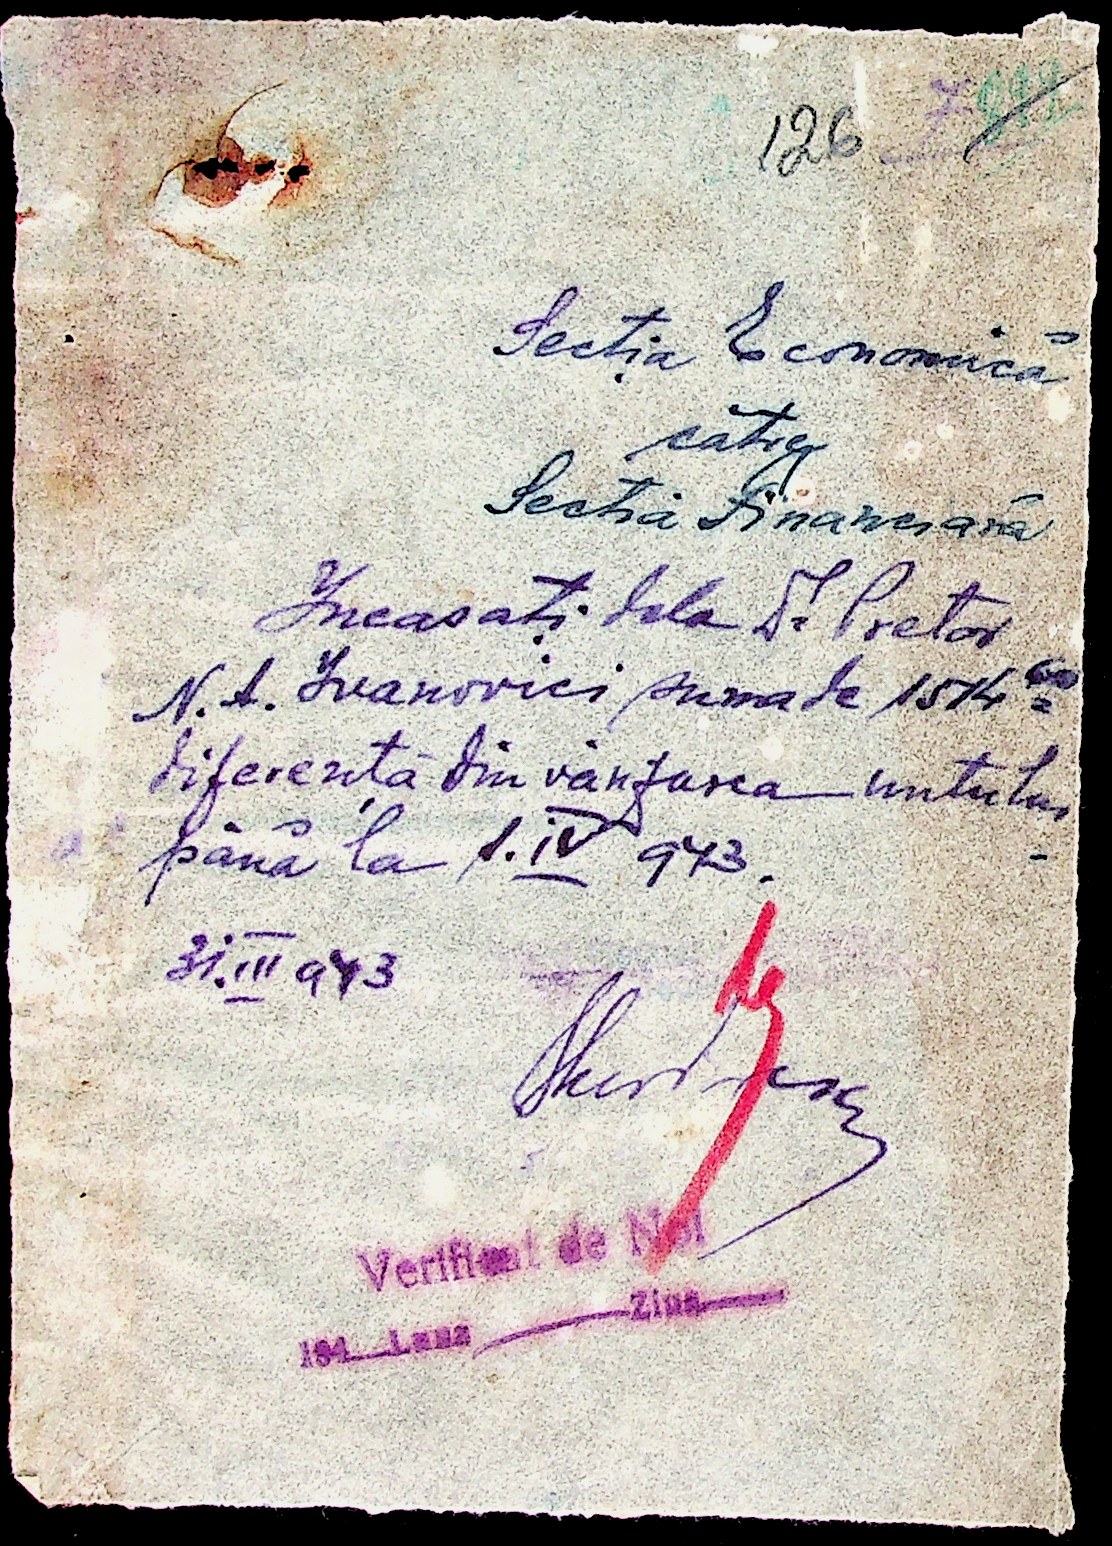 126
Secția Economică
către
Secția Financiară
Incasați dela Dl. Pretor
N. A. Ivanovici suma de 1514
diferență din vânzarea untului
până la 1.IV 943.
31.III 943
Verificat de Noi
194 Luna Ziua